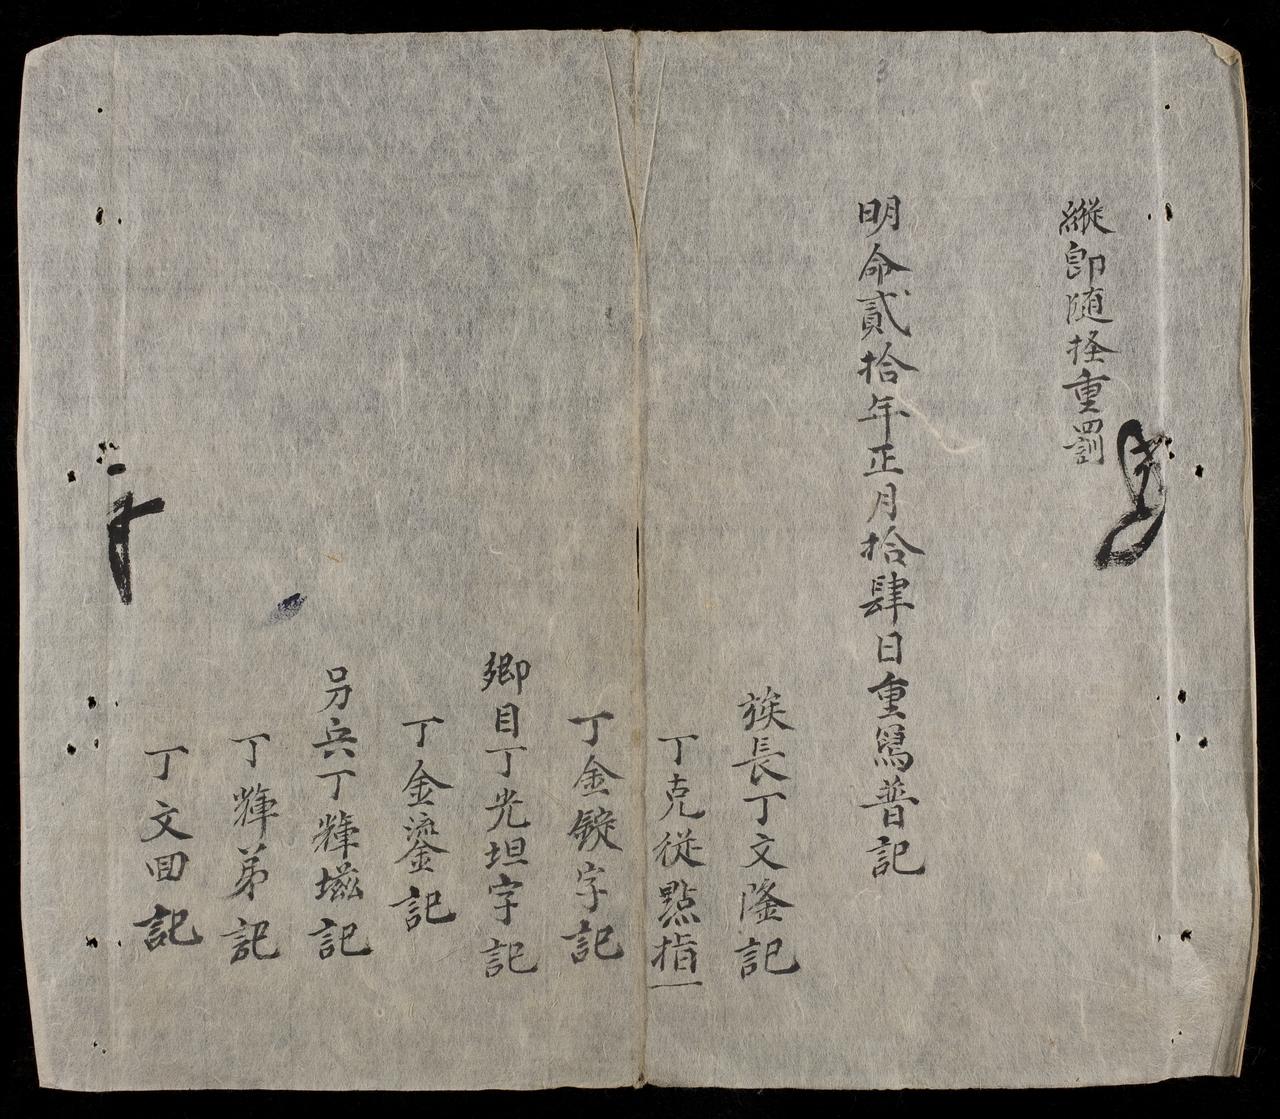 縱即随拯重罰
明命貳拾年正月拾肆日重寫普記
族長丁文隆記
丁克從點指一
丁金錠字記
鄉目丁光坦字記
丁金鎏記
另兵丁輝𡑲記
丁輝弟記
丁文回記
3